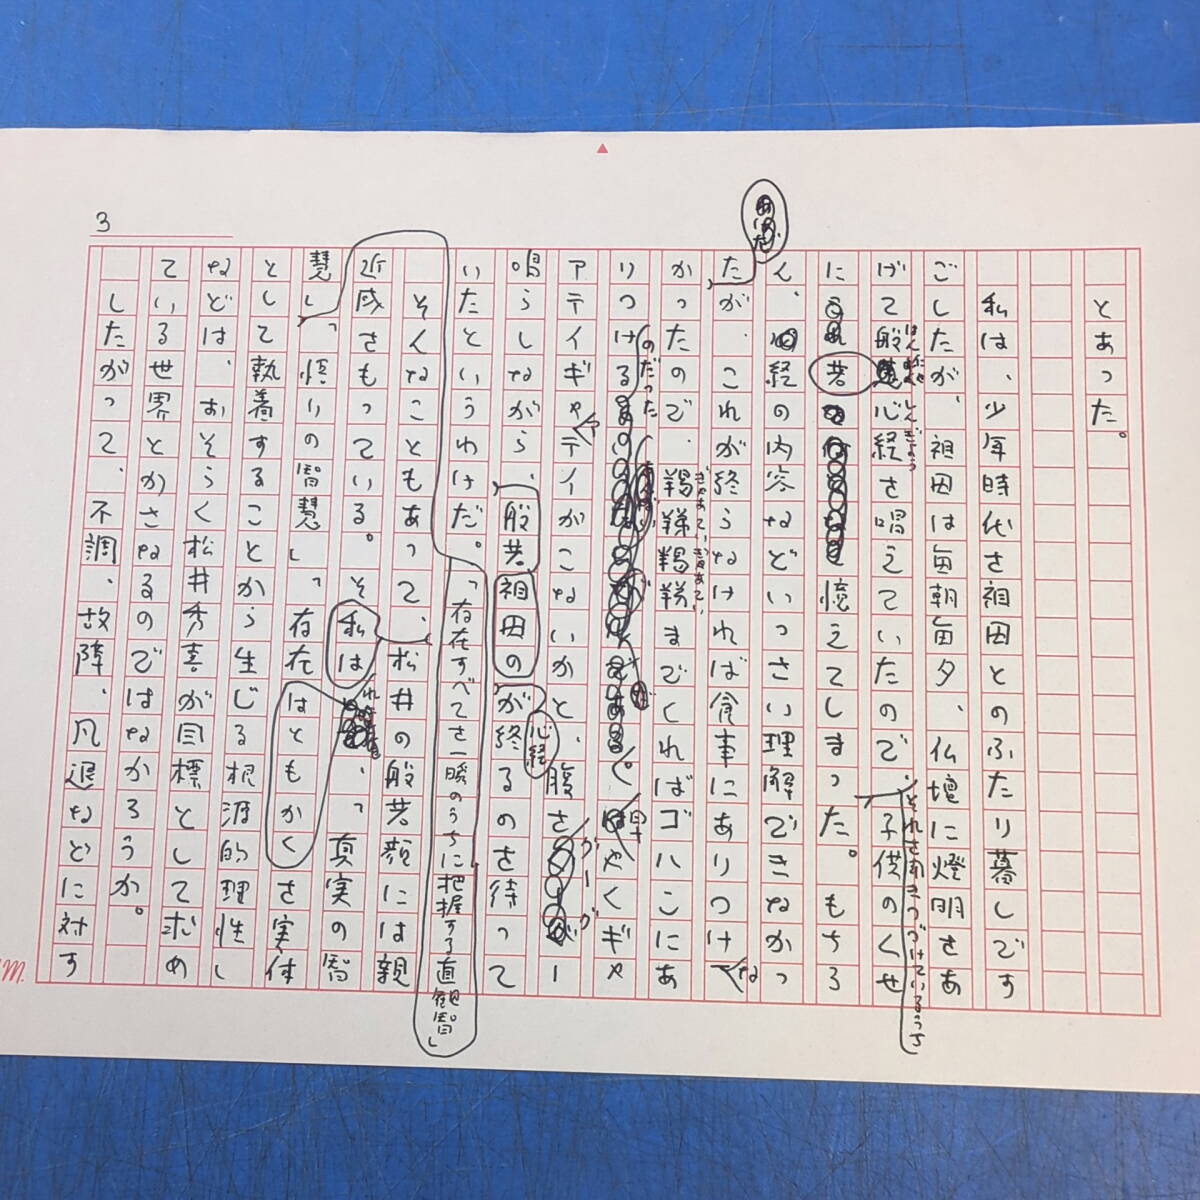 3
とあった。
私は、少年時代を祖母とのふたり暮しです
ごしたが、祖母は毎朝毎夕、仏壇に燈明をあ
げて般若心経を唱えていたので、それを聞きつづけているうち子供のくせ
に憶えてしまった。もちろ
ん、心経の内容などいっさい理解できなかっ
たが、これが終らなければ食事にありつけな
かったので、羯諦羯諦までくればゴハンにあ
りつける のだった 早くギャ
アテイギャテイがこないかと、腹をグーグー
鳴らしながら、祖母の般若心経が終るのを待って
いたというわけだ。
そんなこともあって、私は松井の般若顔には親
近感をもっている。それ、「真実の智
慧」「悟りの智慧」「存在すべてを一瞬のうちに把握する直観智」
はともかく「存在を実体
として執着することから生じる根源的理性」
などは、おそらく松井秀喜が目標として求め
ている世界とかさなるのではなかろうか。
したがって、不調、故障、凡退などに対す